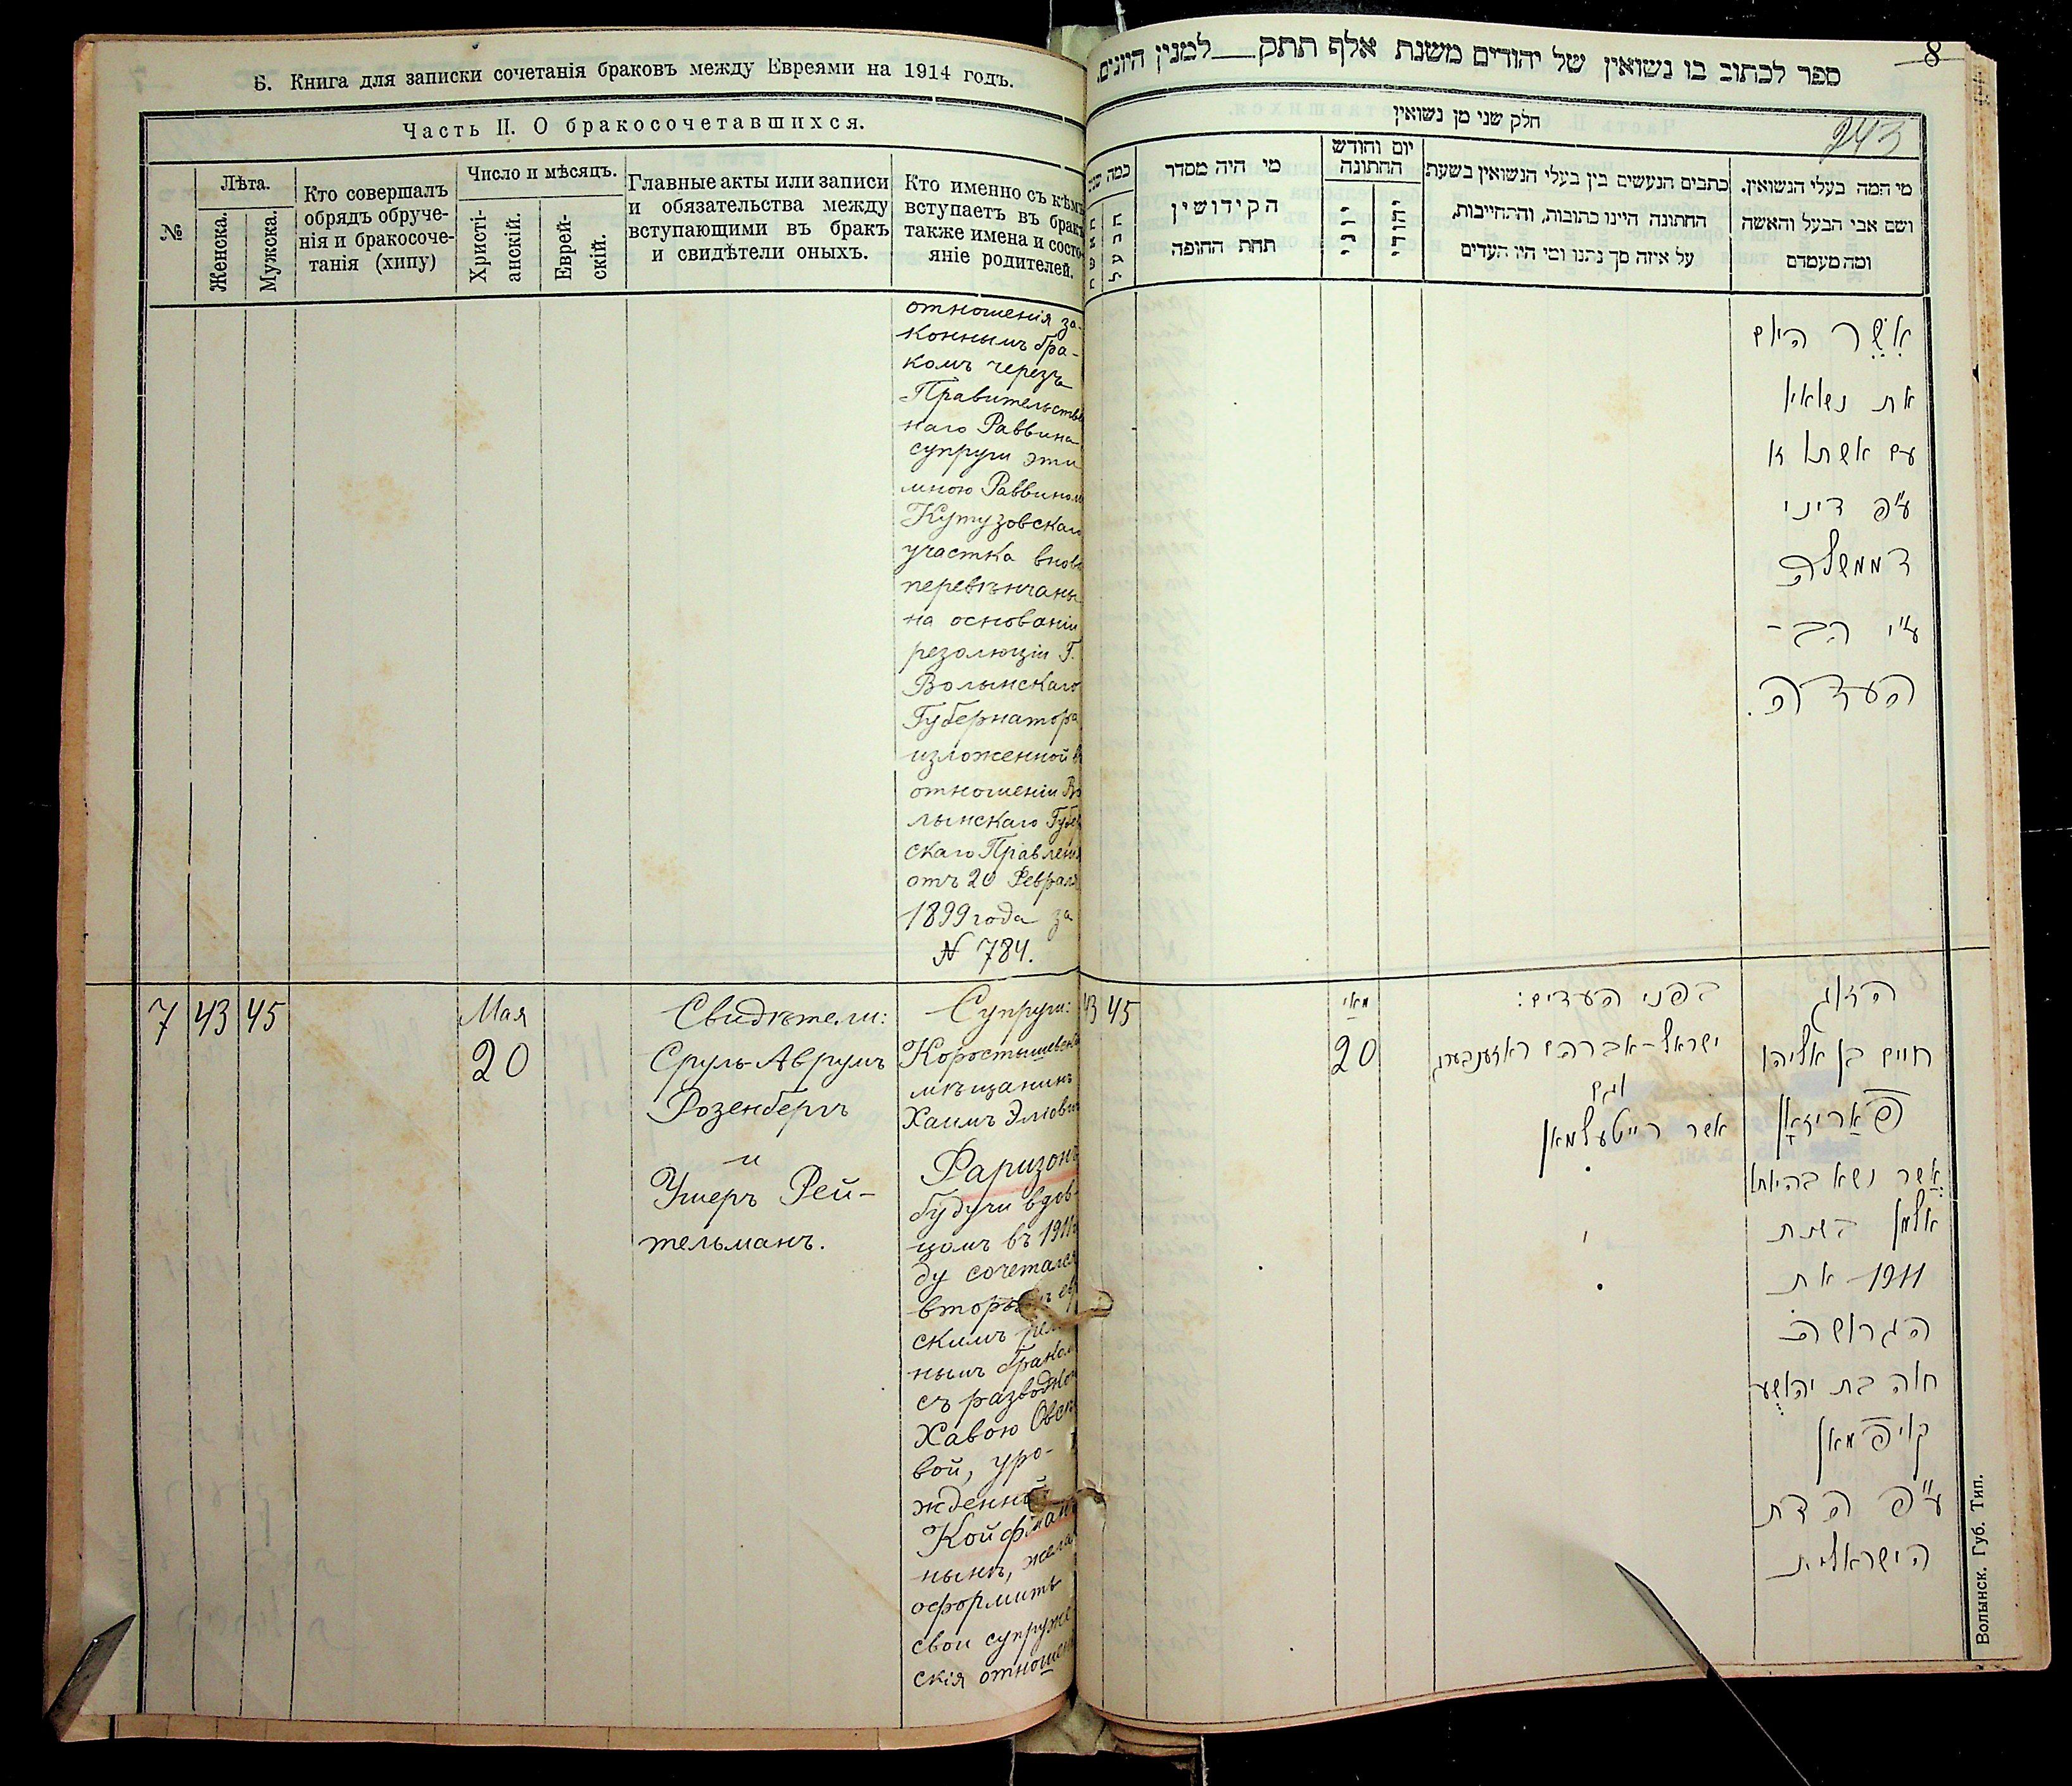 Б. Книга для записки сочетанія браковъ между Евреями на 1914 годъ.
Часть II. О бракосочетавшихся.
№
Лѣта.
Женска.
Мужска.
Кто совершалъ
обрядъ обруче-
нія и бракосоче-
танія (хипу)
Число и мѣсяцъ.
Христі-
анскій.
Еврей-
скій.
Главные акты или записи
и обязательства между
вступающими въ бракъ
и свидѣтели оныхъ.
Кто именно съ кѣмъ
вступаетъ въ бракъ
также имена и состо-
яніе родителей.
отношенія за-
коннымъ бра-
комъ черезъ
Правительствен
наго Раввина
супруги эти
мною Раввиномъ
Кутузовскаго
участка вновь
перевѣнчаны
на основаніи
резолюціи Г.
Волынскаго
Губернатора
изложенной в
отношеніи Во
лынскаго Губер
скаго Правленія
отъ 20 Февраля
1899 года за
№ 784.
7 43 45
Мая
20
Свидѣтели:
Сруль-Аврумъ
Розенбергъ
и
Ушеръ Рей-
тельманъ.
Супруги:
Коростышевскій
мѣщанинъ
Хаимъ Эліовичъ
Фаризонъ
будучи вдов-
цомъ въ 1911 г
ду сочетался
вторымъ евр
скимъ рел
нымъ бракомъ
съ разводкою
Хавою Овсе
вой, уро-
жденной
Койфман
нынѣ, желая
оформить
свои супруже
скія отношен
8
ספר לכתוב בו נשואין של יהודים משנת אלף תתק למנין היונים.
243
חלק שני מן נשואין
מי המה בעלי הנשואין.
ושם אבי הבעל והאשה
ומה מעמדם
כתבים הנעשים בין בעלי הנשואין בשעת
החתונה היינו כתובות, והתחייבות,
על איזה סך נתנו ומי היו העדים
יום וחודש
החתונה
מי היה מסדר
הקידושין
תחת החופה
כמה שנים
אשר היום
את נשואיו
עם אשתו זו
ע״פ דיני
דממשלה
ע״י הרב -
העדה.
43 45
מאי
20
בפני העדים:
ישראל-אברהם ראזענבערג
וגם
אשר רייטעלמאן
הזוג
חיים בן אליהו
פאריזאן
אשר נשא בהיותו
אלמן בשנת
1911 את
הגרושה
חוה בת יהושע
קויפמאן
ע״פ הדת
הישראלית
Волынск. Губ. Тип.